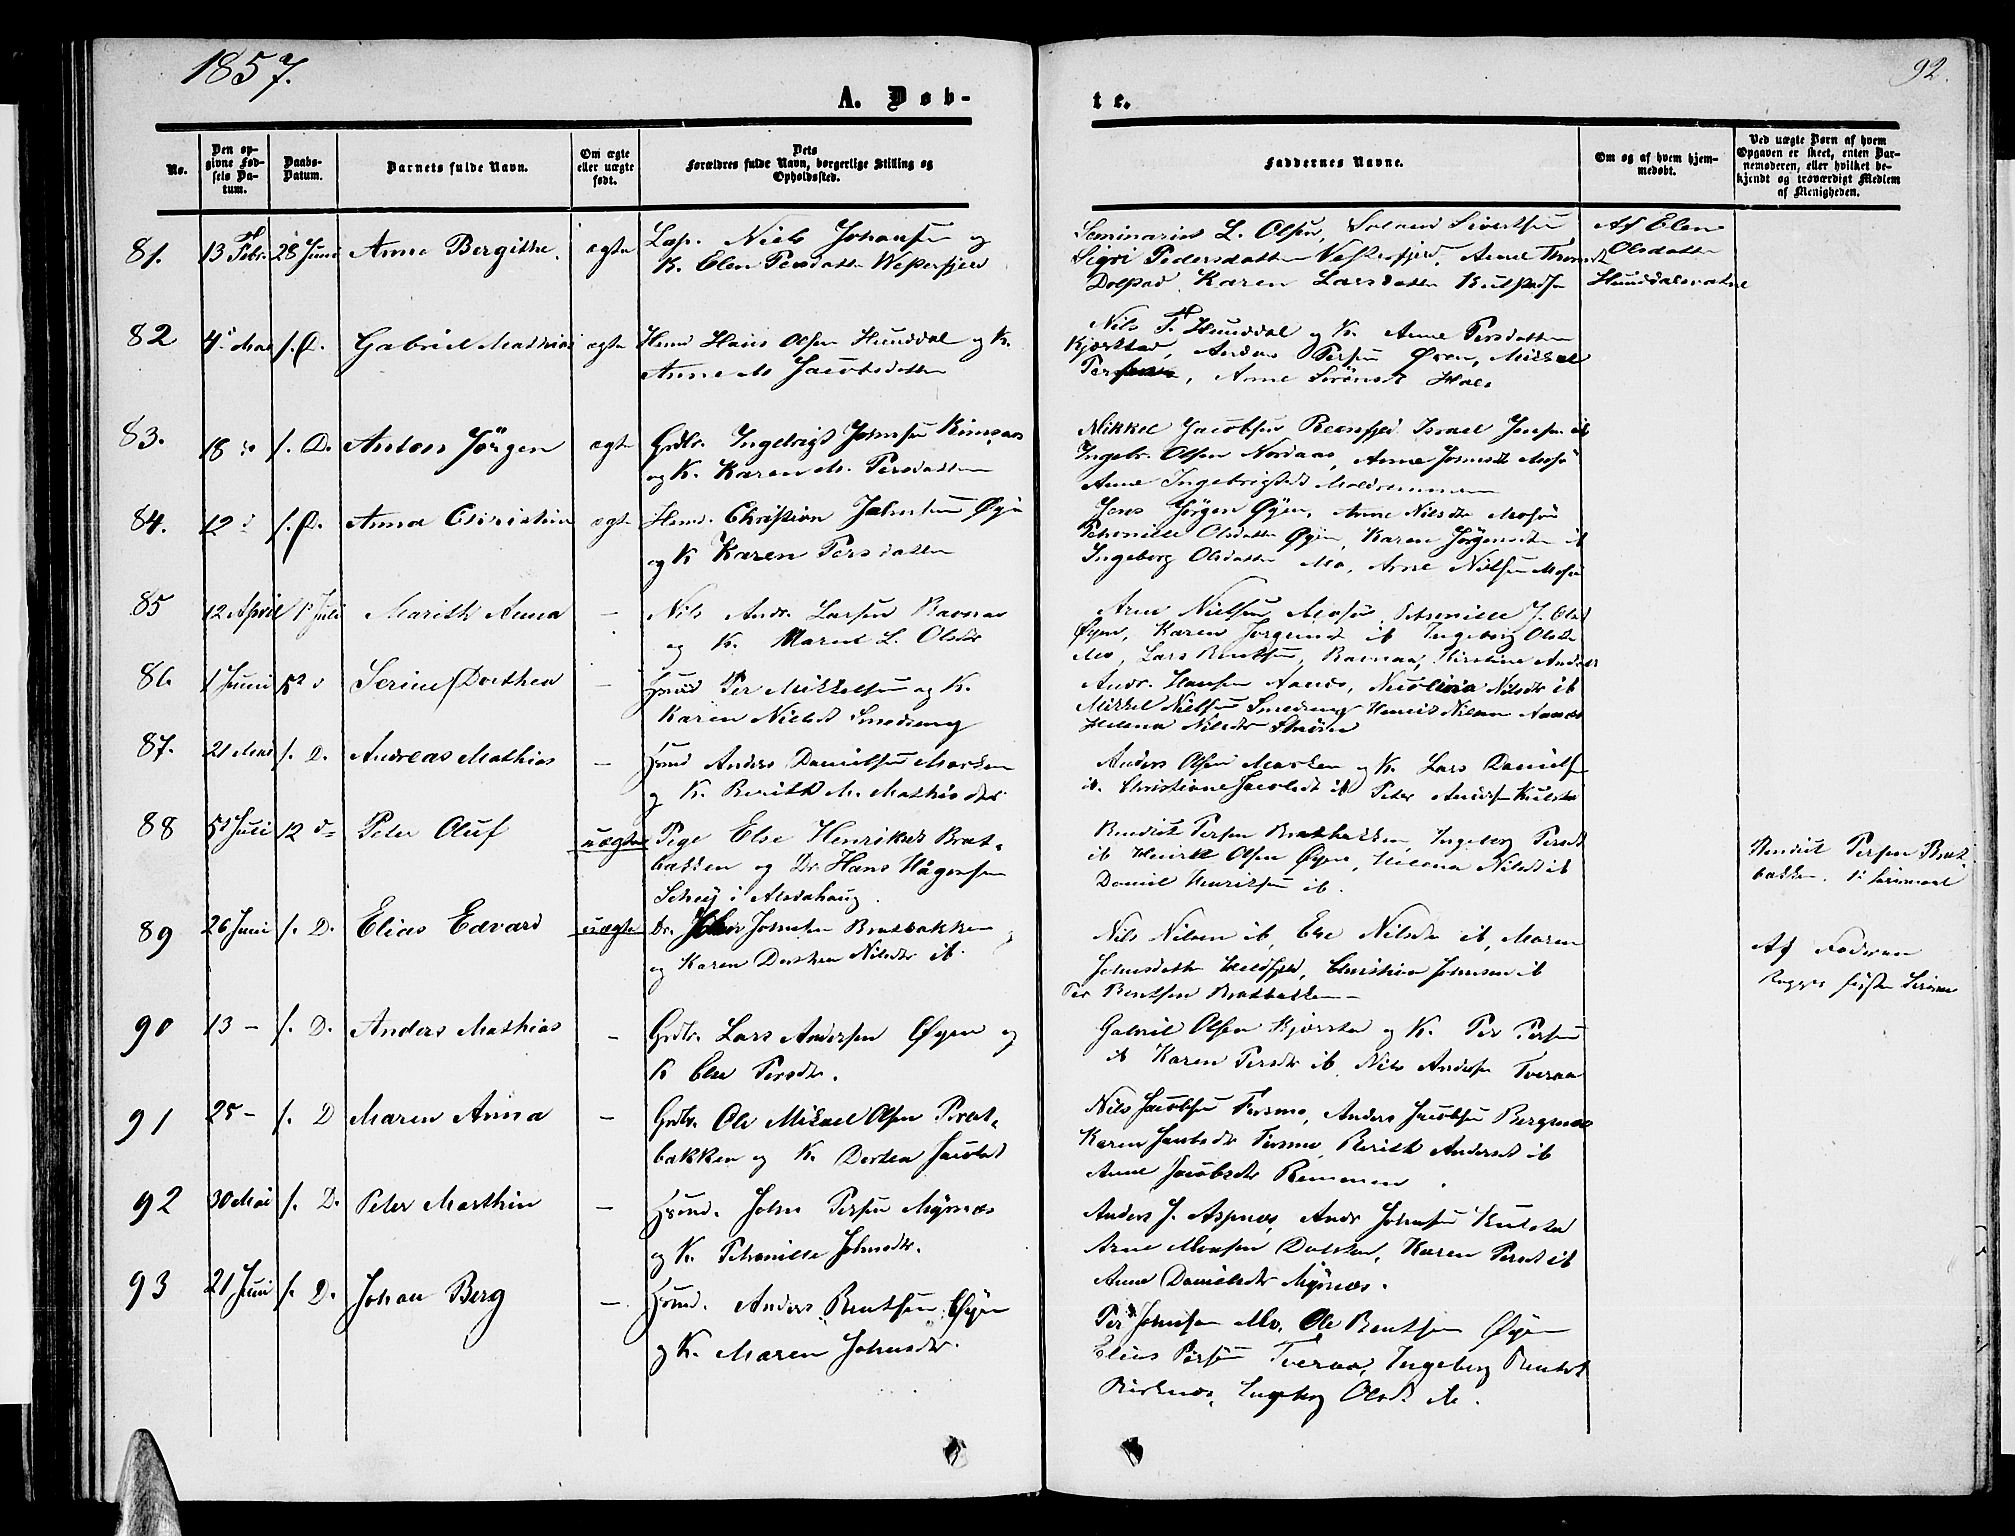 1857.
92.
A. Døb-
te.
No.
Den op-
givne Fød-
sels Da-
tum.
Daabs-
Datum.
Barnets fulde Navn.
Om ægte
eller uægte
født.
Dets
Forældres fulde Navn, borgerlige Stilling og
Opholdssted.
Faddernes Navne.
Om og af hvem hjem-
medøbt.
Ved uægte Børn af hvem
Opgaven er skeet, enten Bar-
nemoderen, eller hvilket be-
kjendt og troværdigt Medlem
af Menigheden.
81. 13 Febr. 28 Juni Anne Bergithe. ægte Lap. Niels Johansen og
K. Elen Persdatter Vesterfjeld
Seminarist L. Olsen, Sivertsen
Sigri Pedersdatter Vesterfjeld, Anne
Dolstad, Karen Larsdatter
Af Elen
Olsdatter
Hunddalsvatne
82 4 Mai f. D. Gabriel Mathias ægte Hmd Hans Olsen Hunddal og K.
Anne M Jacobsdatter
Nils T. Hunddal og K. Anne Persdatter
Kjærstad, Anders Persen Øren, Mikkel
Persen, Anne Hals
83. 18 d f. D. Anton Jörgen ægte Grdbr. Ingebrigt Johnsen
og K. Karen M. Persdatter
Mikkel Jacobsen Israel Jensen ib
Ingebr. Olsen Nordaas, Anne
Anne Ingebrigtsdt
84. 12 d f. D. Anna Christine ægte Hmd. Christian Johnsen Øyen
og K Karen Persdatter
Jens Jörgen Øyen, Anne Nilsdtr
Petronille Olsdatter Øyen, Karen Jörgensdtr ib
Ingeborg Olsdatter Mo, Arne Nielsen
85 12 April 1 Juli Marith Anna — Nils Andr. Larsen Ravnaa
og K. Maren L. Olsdtr
Arne Nielsen Petronille J. Olsd
Øyen, Karen Jörgensd ib Ingeborg Olsdtr
Mo, Lars Bentsen, Ravnaa, Kirstine Andersd
86 1 Juni 5 d Serine Dorthea — Huusmd Per Mikkelsen og K.
Karen Nielsd Smedseng
Andr. Hansen Aanes, Nicolina Nilsdtr ib
Mikkel Nielsen Smedseng Henrik Nilsen
Helena Nilsdtr
87. 21 Mai f. D. Andreas Mathias — Huusmd Anders Danielsen Marken
og K. Berith M. Mathisdtr
Anders Olsen Marken og K. Lars Danielsen
ib. Christiane Jacobsdt ib Peter Andersen Kulstad
88 5 Juli 12 d Peter Oluf uægte Pige Else Henriksd Brat-
bakken og Dr. Hans Hågensen
i Alstahaug.
Bendict Persen Bratbakken, Ingeborg Persdt
ib Henrik Olsen Øyen, Helena Nilsd ib
Daniel Henriksen ib.
Bendict Persen Brat-
bakken.
89 26 Juni f. D. Elias Edvard uægte Dr. Johnsen Bratbakken
og Karen Dorthea Nilsdtr ib.
Nils Nilsen ib, Else Nilsdtr ib, Maren
Johnsdatter Christian Johnsen ib
Per Bentsen Bratbakken —
Af Faderen
90 13 — f. D. Anders Mathias — Grdbr. Lars Andersen Øyen og
K Else Persdtr.
Gabriel Olsen Kjærstad og K. Per Persen
ib Karen Persdtr ib, Nils Andersen Tveraa
91 25 — f. D Maren Anna — Grdbr. Ole Mikael Olsen Brat-
bakken og K. Dortea Jacobsd
Nils Jacobsen Forsmo, Anders Jacobsen Bergsnæs
Karen Jacobsdtr Forsmo, Berith Andersdt ib
Anne Jacobsdtr Remmen
92 30 Mai f. D. Peter Marthin — Huusmd. John Persen Myrnæs
og K. Petronille Johnsdtr.
Anders J. Aspnæs, Andr Johnsen Kulstad
Arne Monsen Dolstad, Karen Persd ib
Anne Danielsdtr Myrnæs.
93 21 Juni f. D. Johan Berg — Huusmd. Anders Bentsen Øyen
og K. Maren Johnsdtr.
Per Johnsen Mo, Ole Bentsen Øyen
Elias Persen Tveraa, Ingeborg Bentsd
Ingeborg Olsd